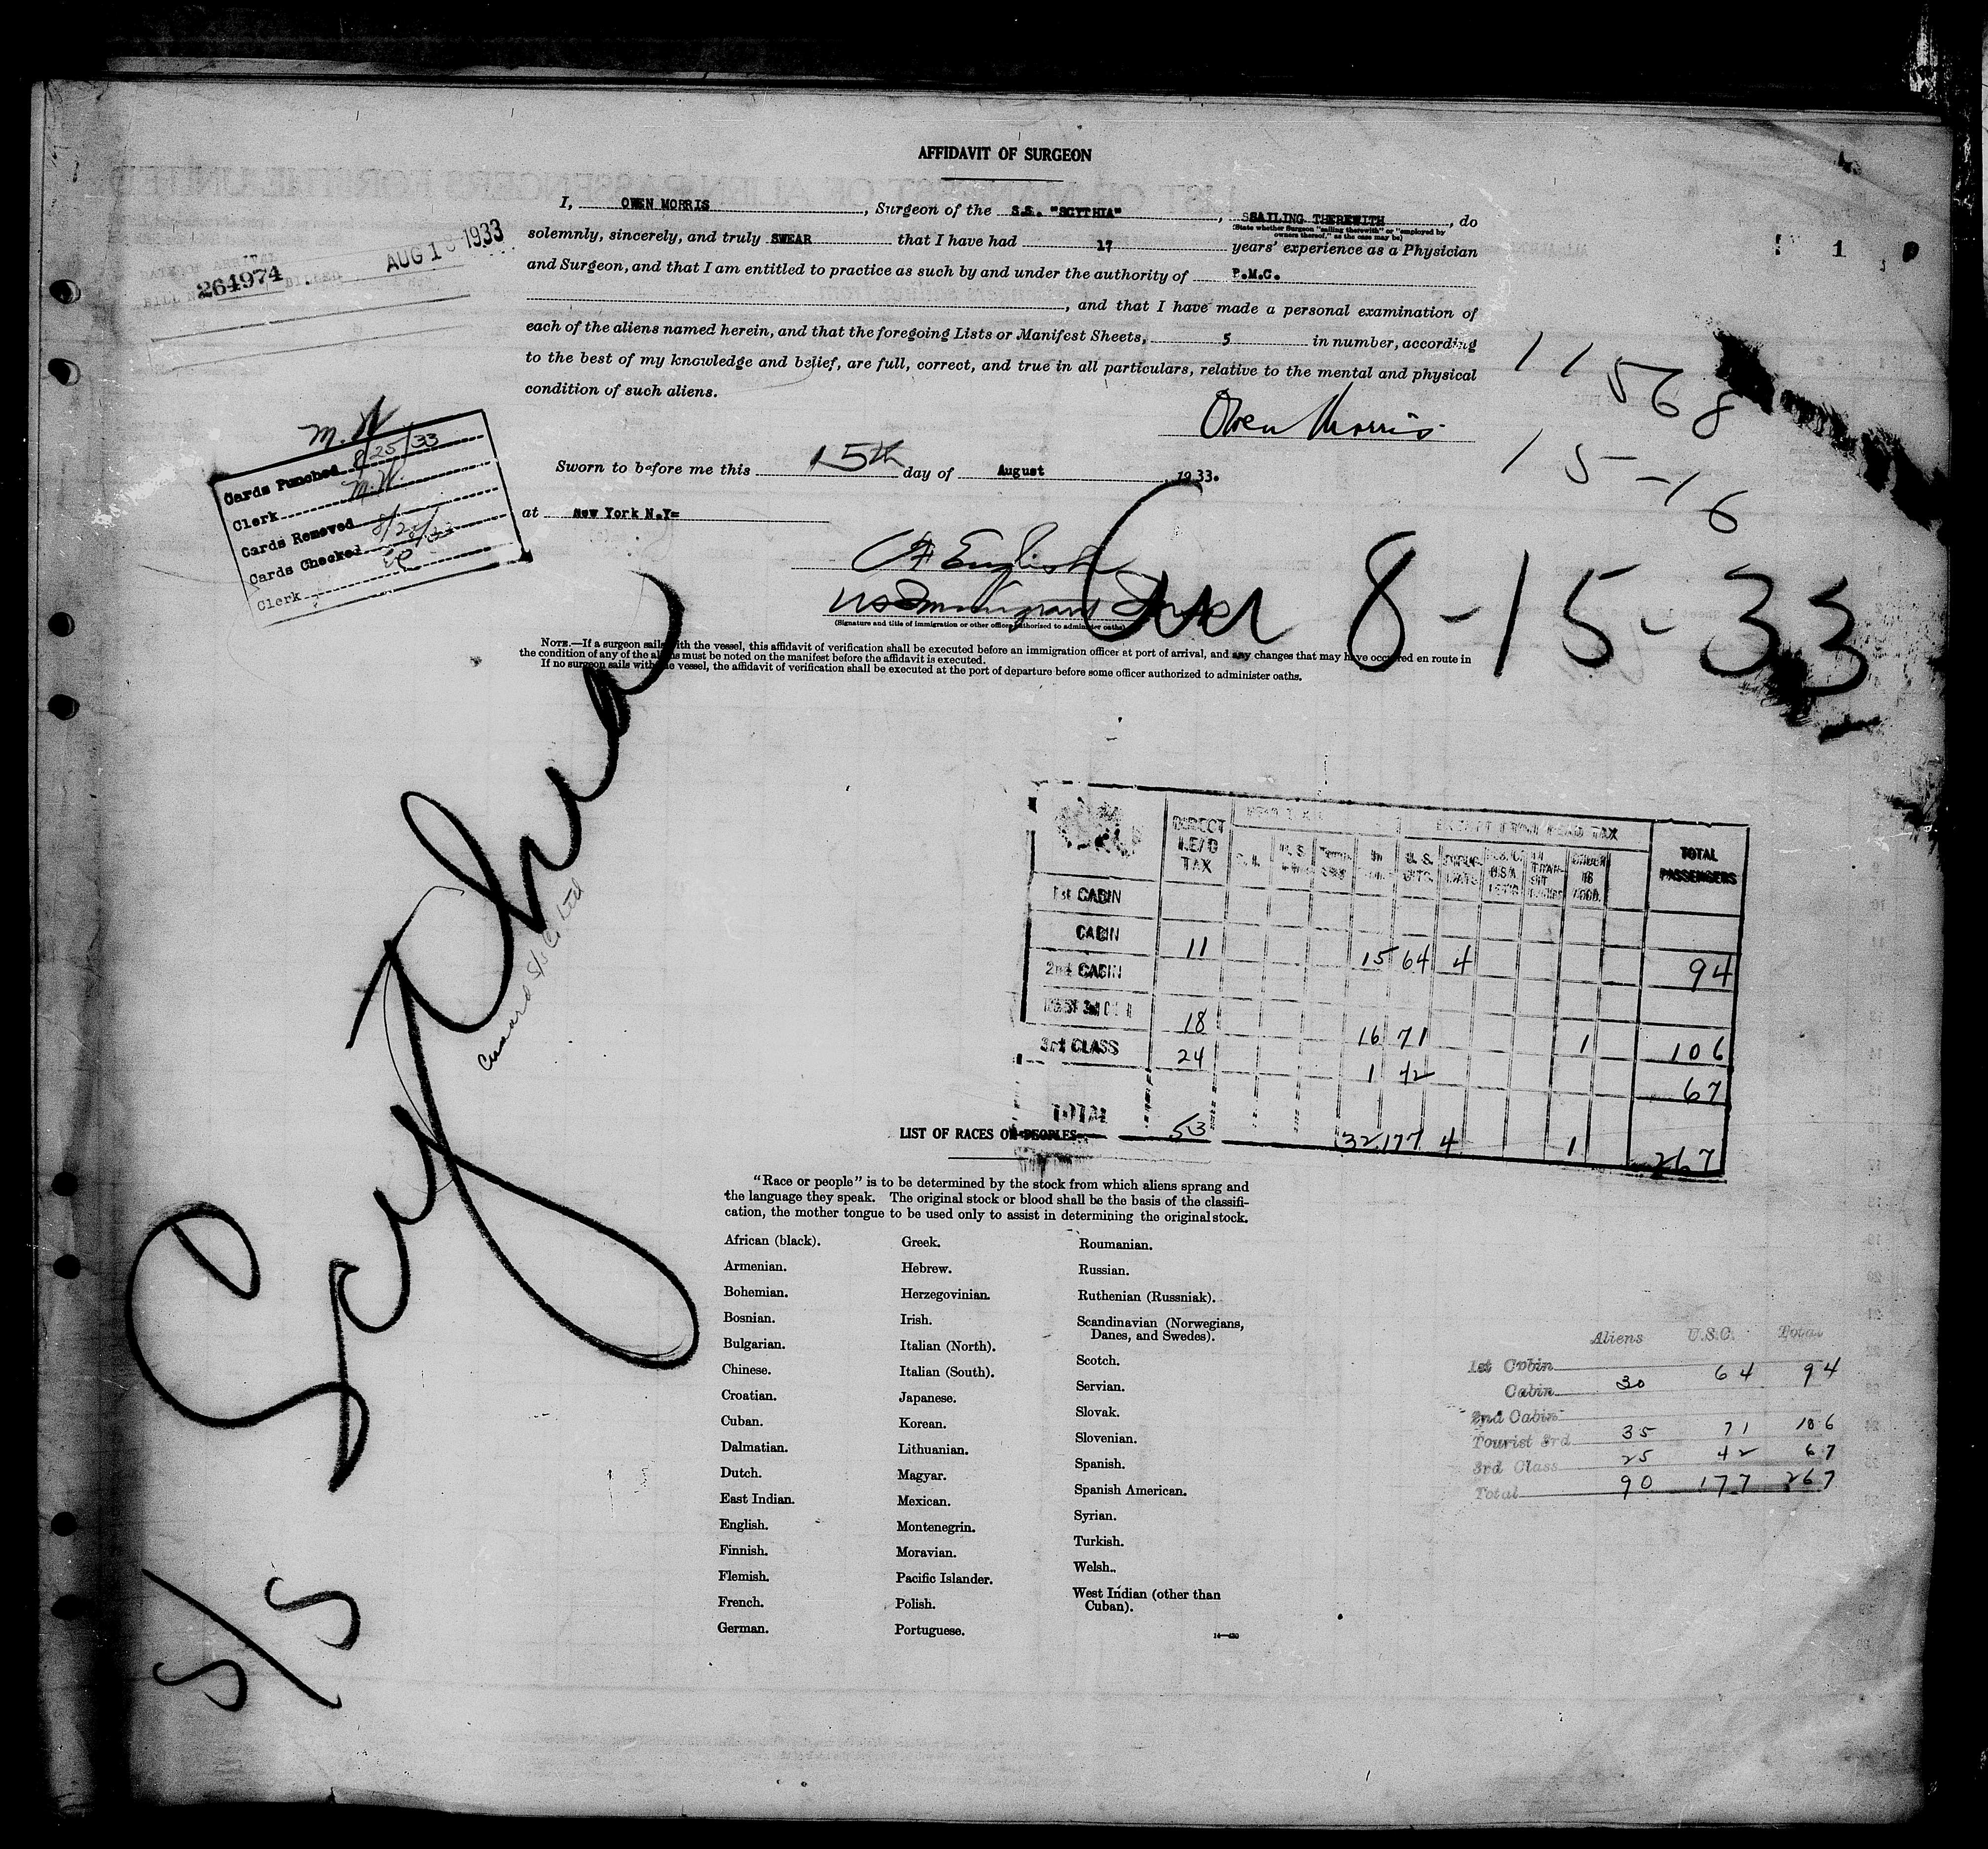 AFFIDAVIT OF SURGEON
I, OWEN MORRIS, Surgeon of the S.S. "SCYTHIA", SSAILING THEREWITH, do
(State whether Surgeon "sailing therewith" or "employed by
owners thereof," as the case may be)
solemnly, sincerely, and truly SWEAR that I have had 17 years' experience as a Physician
and Surgeon, and that I am entitled to practice as such by and under the authority of P.M.C.
, and that I have made a personal examination of
each of the aliens named herein, and that the foregoing Lists or Manifest Sheets, 5 in number, according
to the best of my knowledge and belief, are full, correct, and true in all particulars, relative to the mental and physical
condition of such aliens.
Owen Morris
Sworn to before me this 15th day of August, 1933.
at New York N.Y=
English
US Immigrant
(Signature and title of immigration or other officer authorized to administer oaths)
NOTE.—If a surgeon sails with the vessel, this affidavit of verification shall be executed before an immigration officer at port of arrival, and any changes that may have occurred en route in
the condition of any of the aliens must be noted on the manifest before the affidavit is executed.
If no surgeon sails with the vessel, the affidavit of verification shall be executed at the port of departure before some officer authorized to administer oaths.
264974
AUG 1 1933
BILLED
M.W.
Cards Punched 8/25/33
Clerk M.W.
Cards Removed
Cards Checked
Clerk
1
11568
15-16
8-15-33
S/S Scythia
Cunard S/S Co Ltd
DIRECT HEAD TAX
EXEMPT FROM HEAD TAX
TOTAL PASSENGERS
1st CABIN
CABIN 11 15 64 4 94
2nd CABIN
18 16 71 1 106
3rd CLASS 24 1 42 67
TOTAL 53 32 177 4 1 267
LIST OF RACES OR PEOPLES
"Race or people" is to be determined by the stock from which aliens sprang and
the language they speak. The original stock or blood shall be the basis of the classifi-
cation, the mother tongue to be used only to assist in determining the original stock.
African (black).
Armenian.
Bohemian.
Bosnian.
Bulgarian.
Chinese.
Croatian.
Cuban.
Dalmatian.
Dutch.
East Indian.
English.
Finnish.
Flemish.
French.
German.
Greek.
Hebrew.
Herzegovinian.
Irish.
Italian (North).
Italian (South).
Japanese.
Korean.
Lithuanian.
Magyar.
Mexican.
Montenegrin.
Moravian.
Pacific Islander.
Polish.
Portuguese.
Roumanian.
Russian.
Ruthenian (Russniak).
Scandinavian (Norwegians,
Danes, and Swedes).
Scotch.
Servian.
Slovak.
Slovenian.
Spanish.
Spanish American.
Syrian.
Turkish.
Welsh.
West Indian (other than
Cuban).
Aliens U.S.C. Total
1st Cabin
Cabin 30 64 94
2nd Cabin
Tourist 3rd 35 71 106
3rd Class 25 42 67
Total 90 177 267